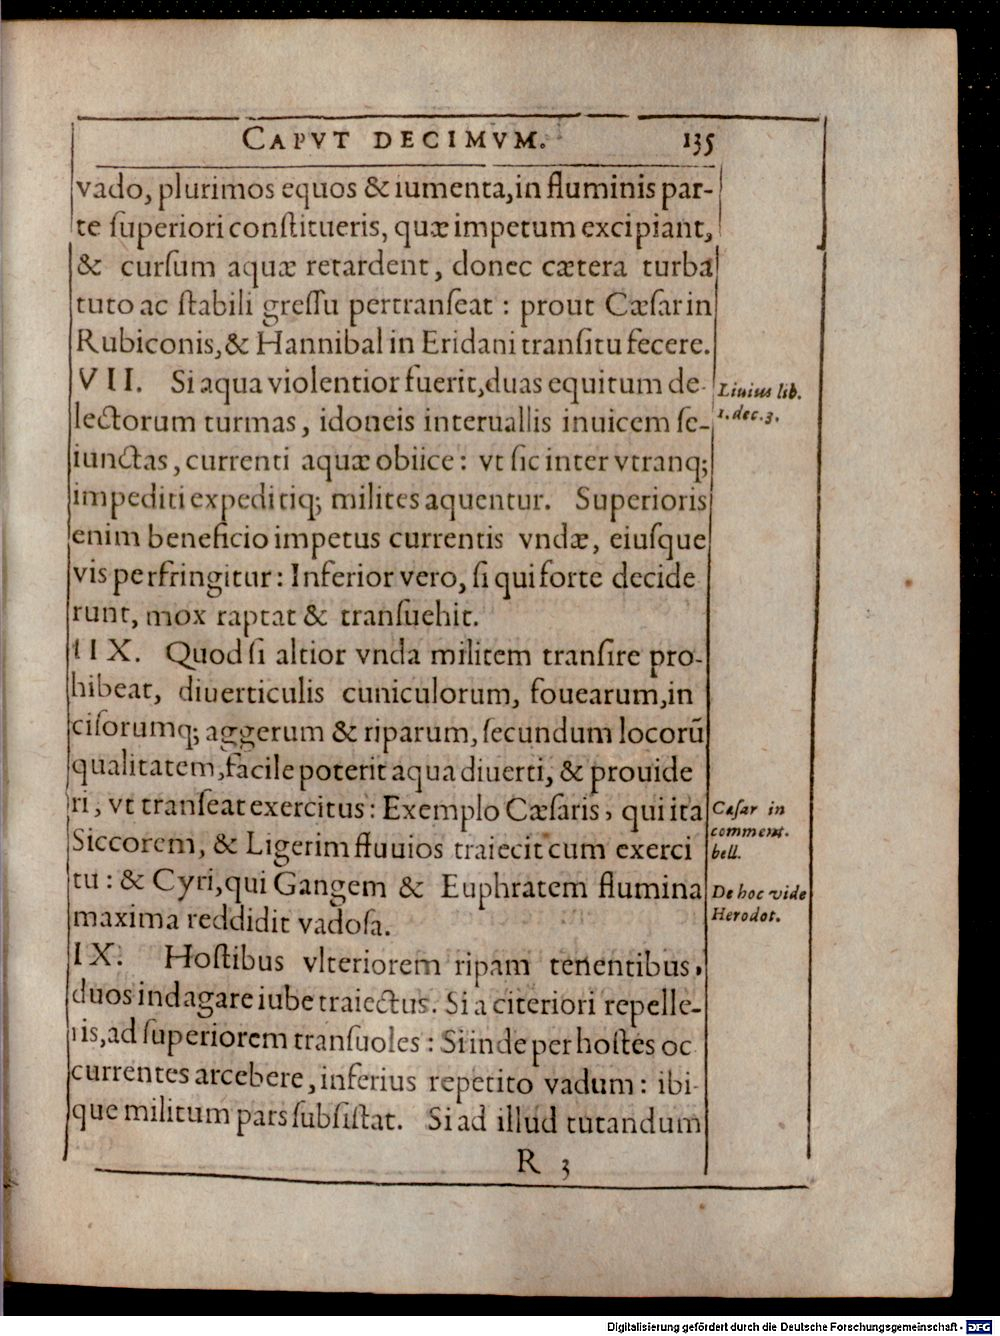 CAPVT DECIMVM. 135
vado, plurimos equos & iumenta, in fluminis par-
te ſuperiori conſtitueris, quæ impetum excipiant,
& curſum aquæ retardent, donec cætera turba
tuto ac ſtabili greſſu pertranſeat : prout Cæſar in
Rubiconis, & Hannibal in Eridani tranſitu fecere.
VII. Si aqua violentior fuerit, duas equitum de-
lectorum turmas, idoneis interuallis inuicem ſe-
iunctas, currenti aquæ obiice : vt ſic inter vtranq;
impediti expeditiq; milites aquentur. Superioris
enim beneficio impetus currentis vndæ, eiuſque
vis perfringitur : Inferior vero, ſi qui forte decide
runt, mox raptat & tranſuehit.
IIX. Quod ſi altior vnda militem tranſire pro-
hibeat, diuerticulis cuniculorum, fouearum, in
ciſorumq; aggerum & riparum, ſecundum locorũ
qualitatem, facile poterit aqua diuerti, & prouide
ri, vt tranſeat exercitus : Exemplo Cæſaris, qui ita
Siccorem, & Ligerim fluuios traiecit cum exerci
tu : & Cyri, qui Gangem & Euphratem flumina
maxima reddidit vadoſa.
IX. Hoſtibus vlteriorem ripam tenentibus,
duos indagare iube traiectus. Si a citeriori repelle-
ris, ad ſuperiorem tranſuoles : Si inde per hoſtes oc
currentes arcebere, inferius repetito vadum : ibi-
que militum pars ſubſiſtat. Si ad illud tutandum
R 3
Liuius lib.
1. dec. 3.
Cæſar in
comment.
bell.
De hoc vide
Herodot.
Digitalisierung gefördert durch die Deutsche Forschungsgemeinschaft - DFG